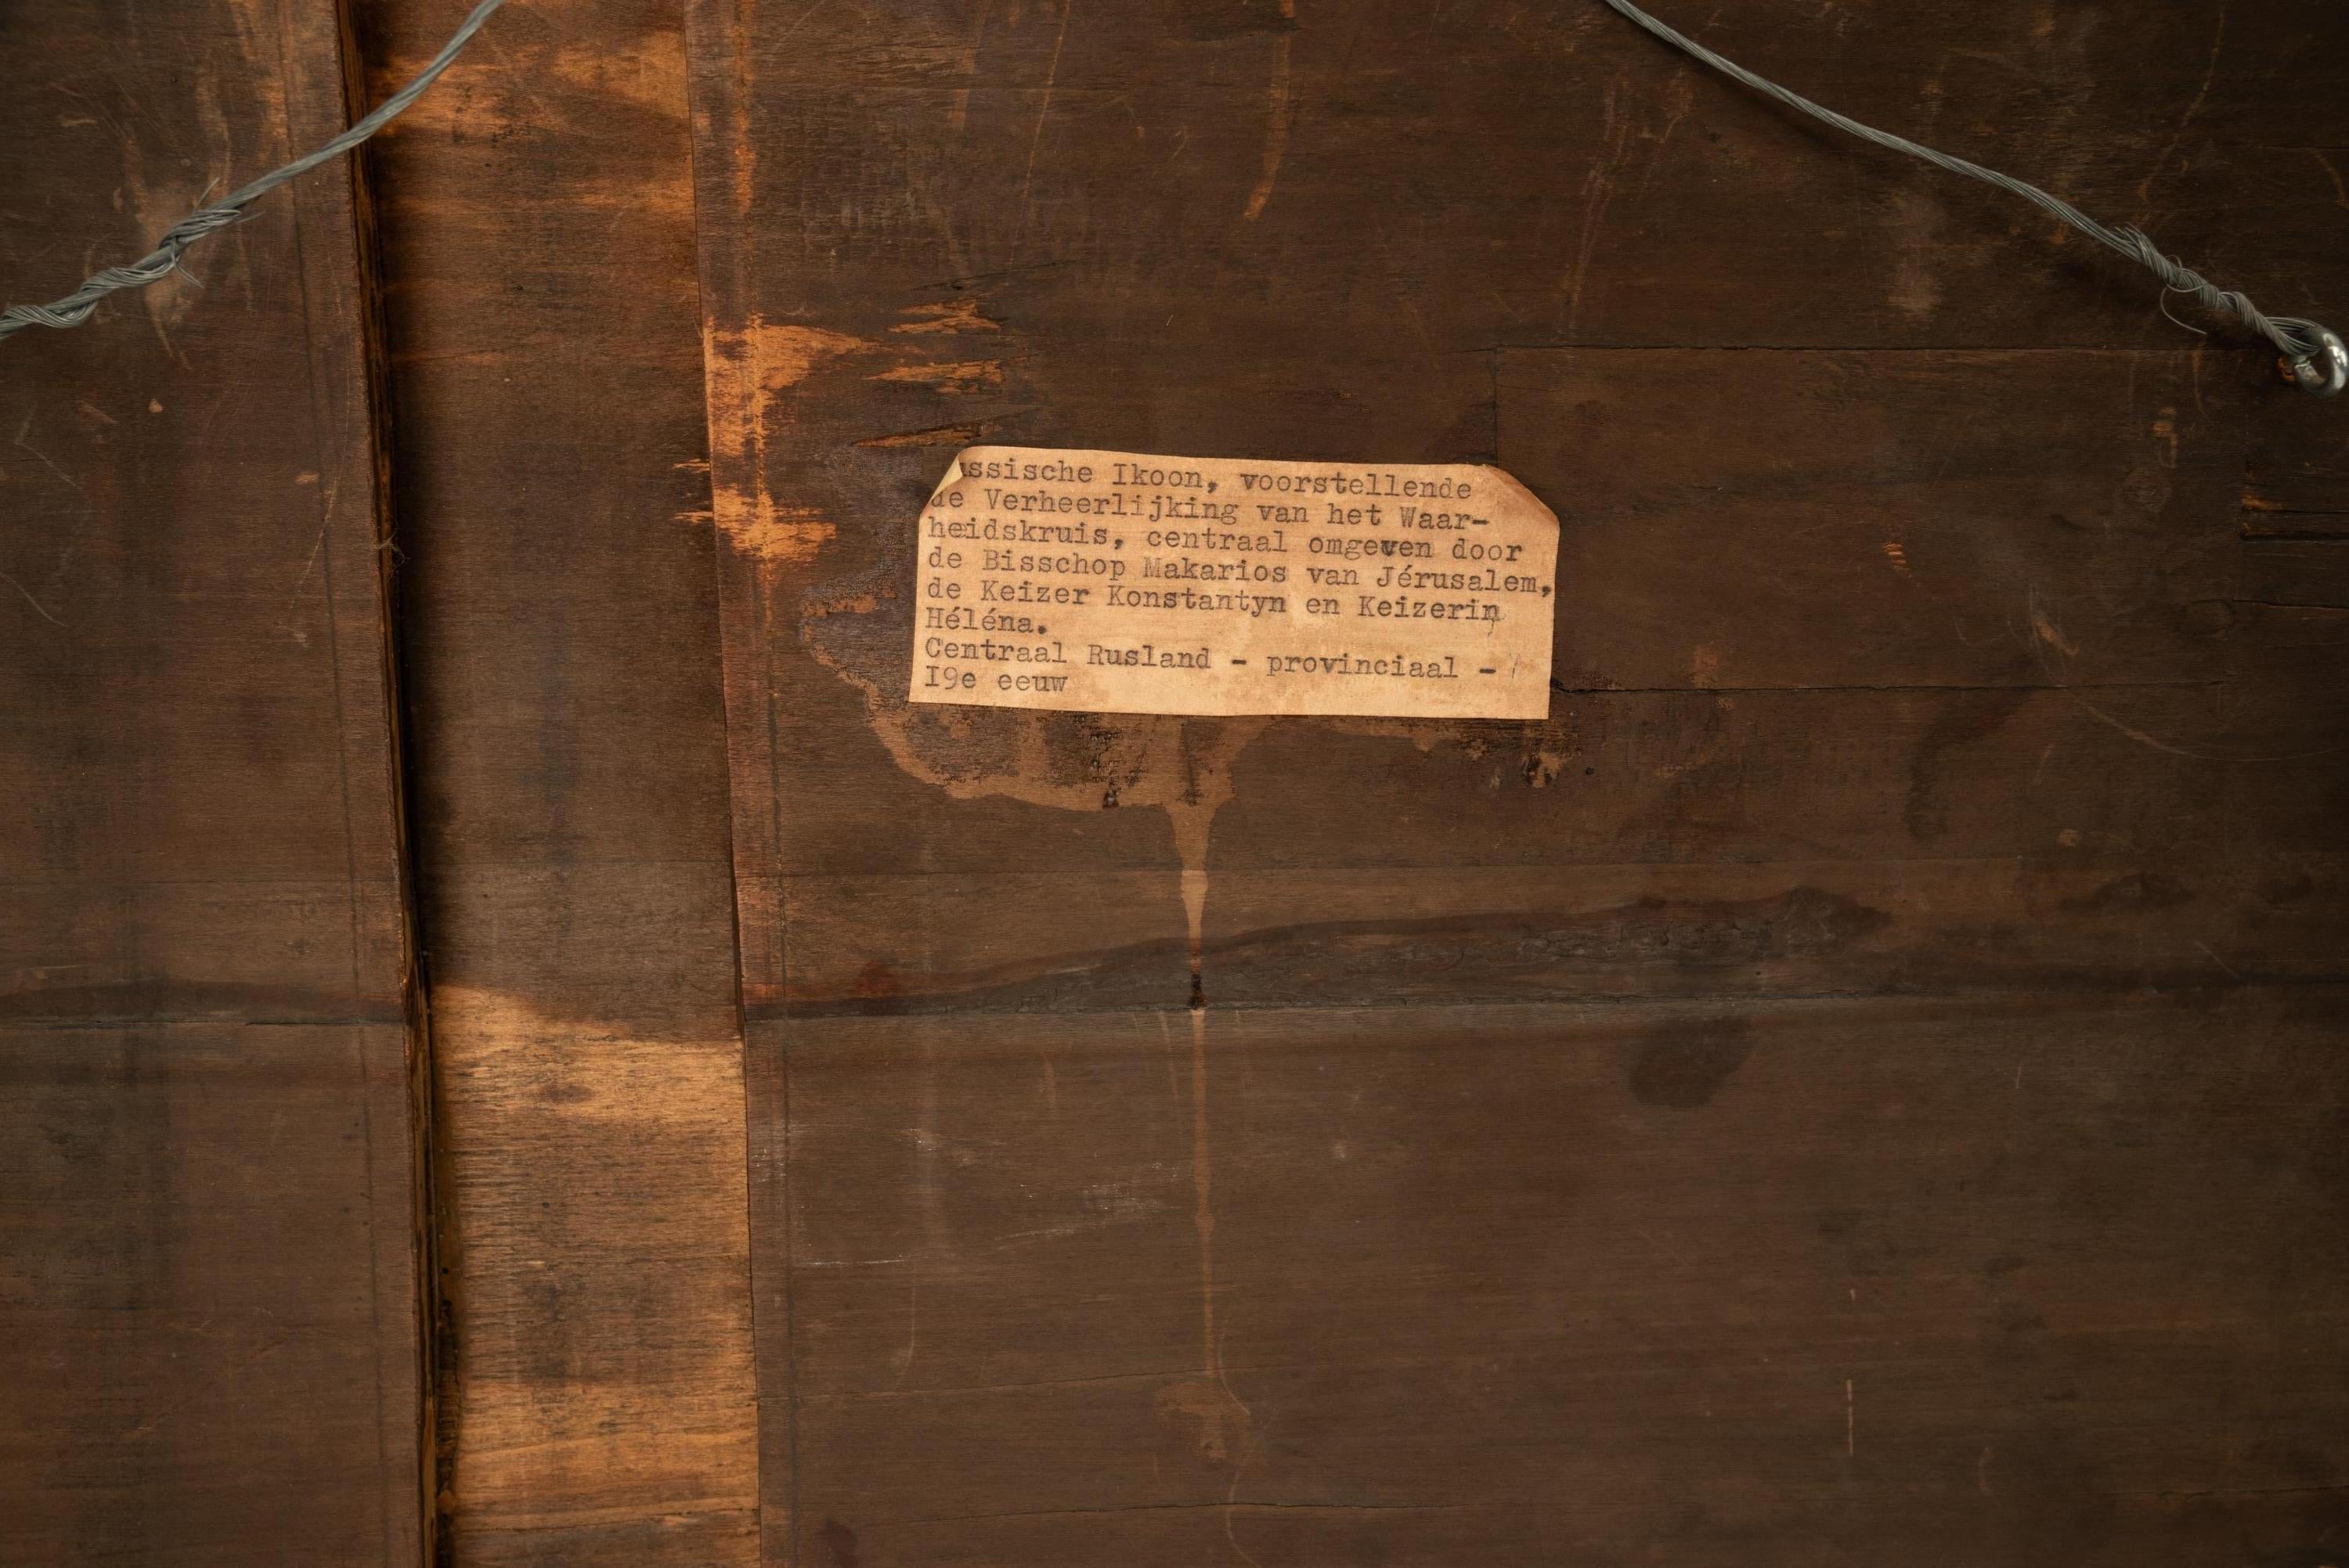 ssische Ikoon, voorstellende
de Verheerlijking van het Waar-
heidskruis, centraal omgeven door
de Bisschop Makarios van Jérusalem,
de Keizer Konstantyn en Keizerin
Héléna.
Centraal Rusland - provinciaal -
I9e eeuw